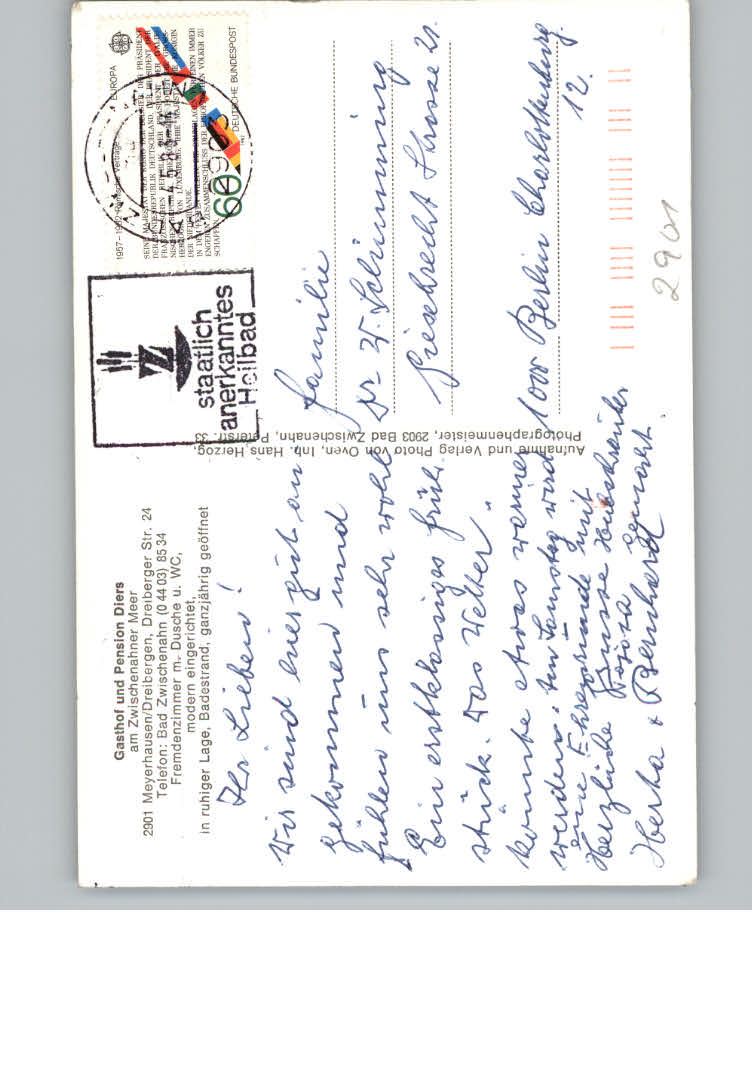 Gasthof und Pension Diers
am Zwischenahner Meer
2901 Meyerhausen/Dreibergen, Dreiberger Str. 24
Telefon: Bad Zwischenahn (0 44 03) 85 34
Fremdenzimmer m. Dusche u. WC,
modern eingerichtet,
in ruhiger Lage, Badestrand, ganzjährig geöffnet
Ihr Lieben!
Wir sind hier gut an
gekommen und
fühlen uns sehr wohl
Ein erstklassiges früh
stück. Das Wetter
könnte etwas wärmer
werden. Am Samstag wird
eine Ehrenrunde mit
Hubschrauber
gemacht.
Herzliche Grüsse
Herta & Bernhard
Aufnahme und Verlag Photo von Oven, Inh. Hans Herzog,
Photographenmeister, 2903 Bad Zwischenahn, Peterstr. 33
staatlich
anerkanntes
Heilbad
1957-1982 Römische Verträge
EUROPA
60
DEUTSCHE BUNDESPOST
2903
Familie
Dr. W. Schimming
Giesebrecht Strasse 21.
1000 Berlin Charlottenburg
12.
2901